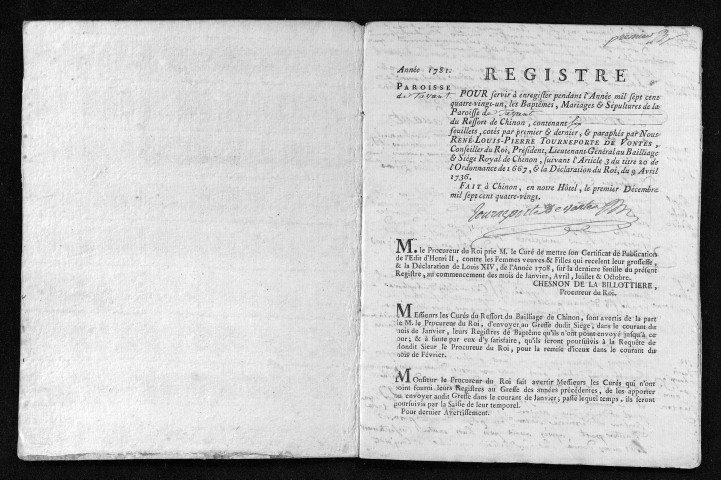 premier
Année 1781.
REGISTRE
PAROISSE
de Tavant
POUR servir à enregister pendant l'Année mil sept cent
quatre-vingt-un, les Baptêmes, Mariages & Sépultures de la
Paroisse de Tavant
du Ressort de Chinon, contenant six
feuillets, cotés par premier & dernier, & paraphés par Nous
RENÉ-LOUIS-PIERRE TOURNEPORTE DE VONTES,
Conseiller du Roi, Président, Lieutenant Général au Bailliage
& Siège Royal de Chinon, suivant l'Article 3 du titre 20 de
l'Ordonnance de 1667, & la Déclaration du Roi, du 9 Avril
1736.
FAIT à Chinon, en notre Hôtel, le premier Décembre
mil sept cent quatre-vingt.
Tourneporte de Vontes
M. le Procureur du Roi prie M. le Curé de mettre son Certificat de Publication
de l'Edit d'Henri II, contre les Femmes veuves & Filles qui recelent leur grossesse,
& la Déclaration de Louis XIV, de l'Année 1708, sur la derniere feuille du présent
Registre, au commencement des mois de Janvier, Avril, Juillet & Octobre.
CHESNON DE LA BILLOTTIERE,
Procureur du Roi.
Messieurs les Curés du Ressort du Bailliage de Chinon, sont avertis de la part
de M. le Procureur du Roi, d'envoyer au Greffe dudit Siége, dans le courant du
mois de Janvier, leurs Registres de Baptême qu'ils n'ont point envoyé jusqu'à ce
jour; & à faute par eux d'y satisfaire, qu'ils seront poursuivis à la Requête de
mondit Sieur le Procureur du Roi, pour la remise d'iceux dans le courant du
mois de Février.
Monsieur le Procureur du Roi fait avertir Messieurs les Curés qui n'ont
point fourni leurs Registres au Greffe des années précédentes, de les apporter
ou envoyer audit Greffe dans le courant de Janvier; passé lequel temps, ils seront
poursuivis par la Saisie de leur temporel.
Pour dernier Avertissement.